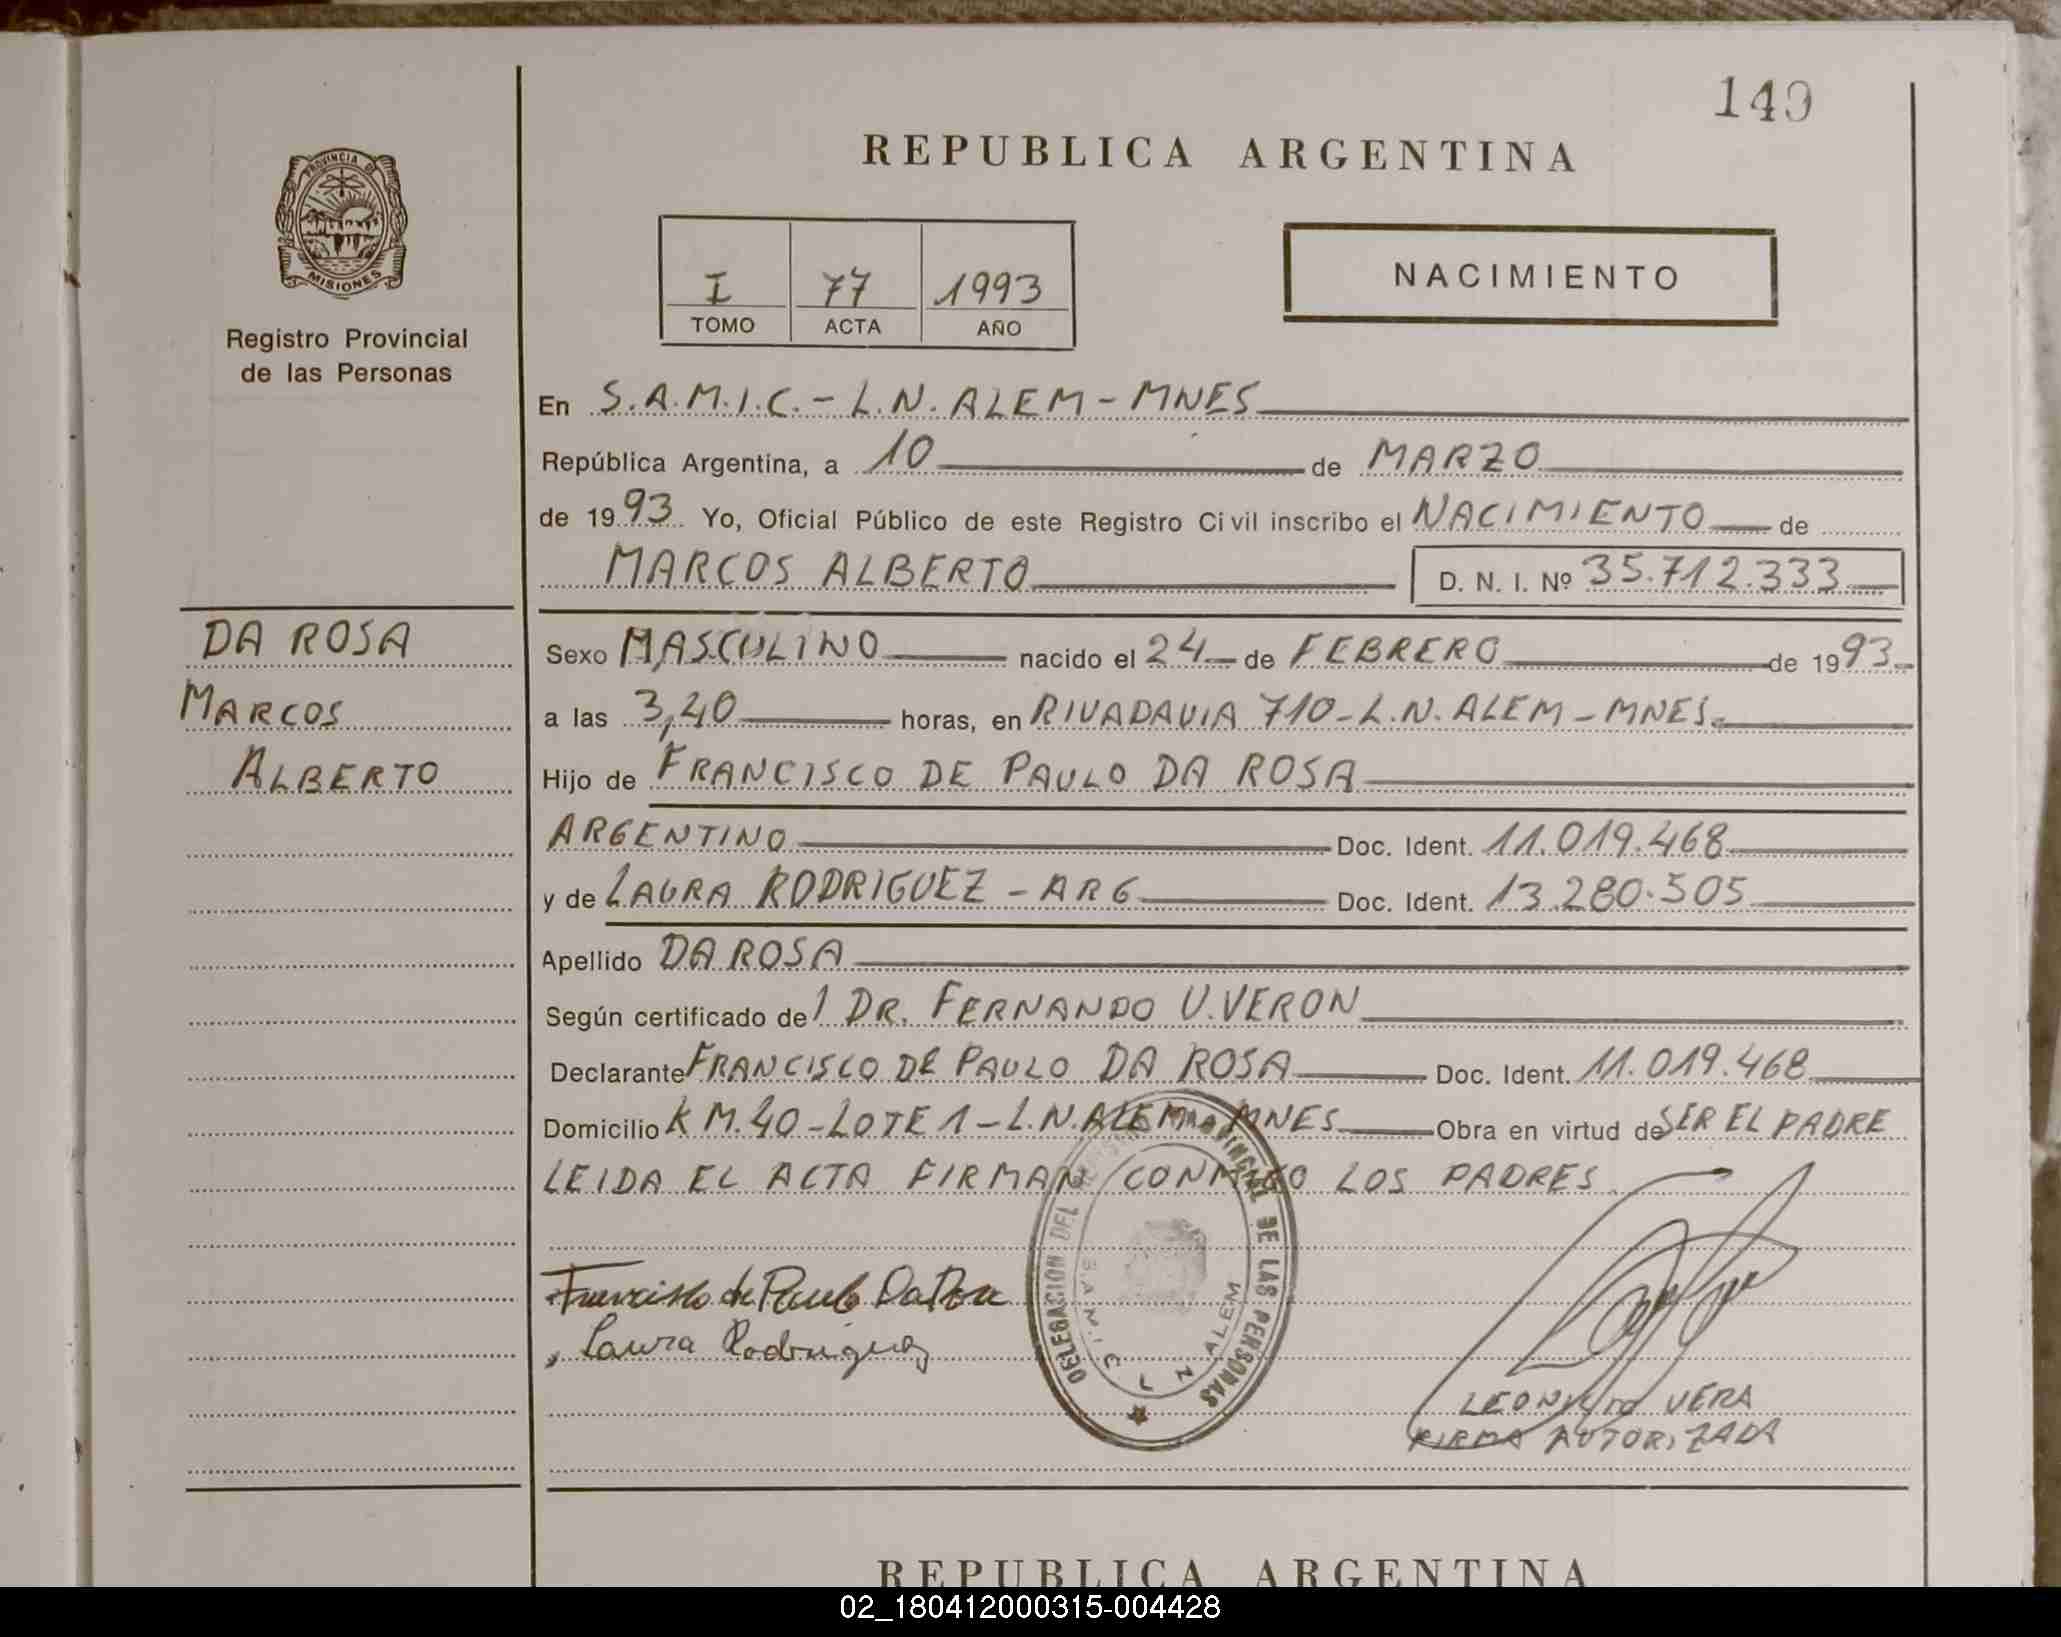 149
REPUBLICA ARGENTINA
PROVINCIA DE
MISIONES
Registro Provincial
de las Personas
I 77 1993
TOMO ACTA AÑO
NACIMIENTO
En S.A.M.I.C. - L.N. ALEM - MNES
República Argentina, a 10 de MARZO
de 1993 Yo, Oficial Público de este Registro Civil inscribo el NACIMIENTO de
MARCOS ALBERTO D. N. I. Nº 35.712.333
DA ROSA
MARCOS
ALBERTO
Sexo MASCULINO nacido el 24 de FEBRERO de 1993
a las 3,40 horas, en RIVADAVIA 710 - L.N. ALEM - MNES.
Hijo de FRANCISCO DE PAULO DA ROSA
ARGENTINO Doc. Ident. 11.019.468
y de LAURA RODRIGUEZ - ARG Doc. Ident. 13.280.505
Apellido DA ROSA
Según certificado de1 DR. FERNANDO V. VERON
Declarante FRANCISCO DE PAULO DA ROSA Doc. Ident. 11.019.468
Domicilio KM. 40 - LOTE 1 - L.N. ALEM - MNES Obra en virtud de SER EL PADRE
LEIDA EL ACTA FIRMAN CONMIGO LOS PADRES
Francisco de Paulo Da Rosa
Laura Rodriguez
DELEGACION DEL PROVINCIAL DE LAS PERSONAS
S.A.M.I.C L N ALEM
VERA
FIRMA AUTORIZADA
REPUBLICA ARGENTINA
02_180412000315-004428